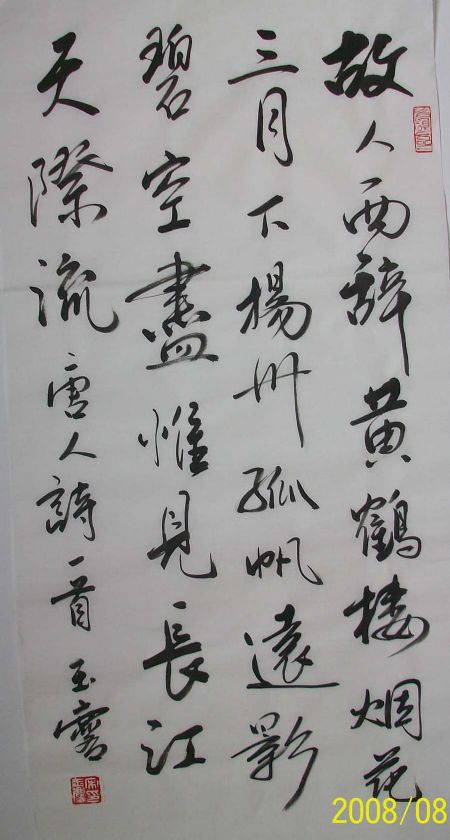 故人西辞黄鶴楼烟花
三月下揚州孤帆遠影
碧空盡惟見長江
天際流唐人詩一首玉霄
2008/08